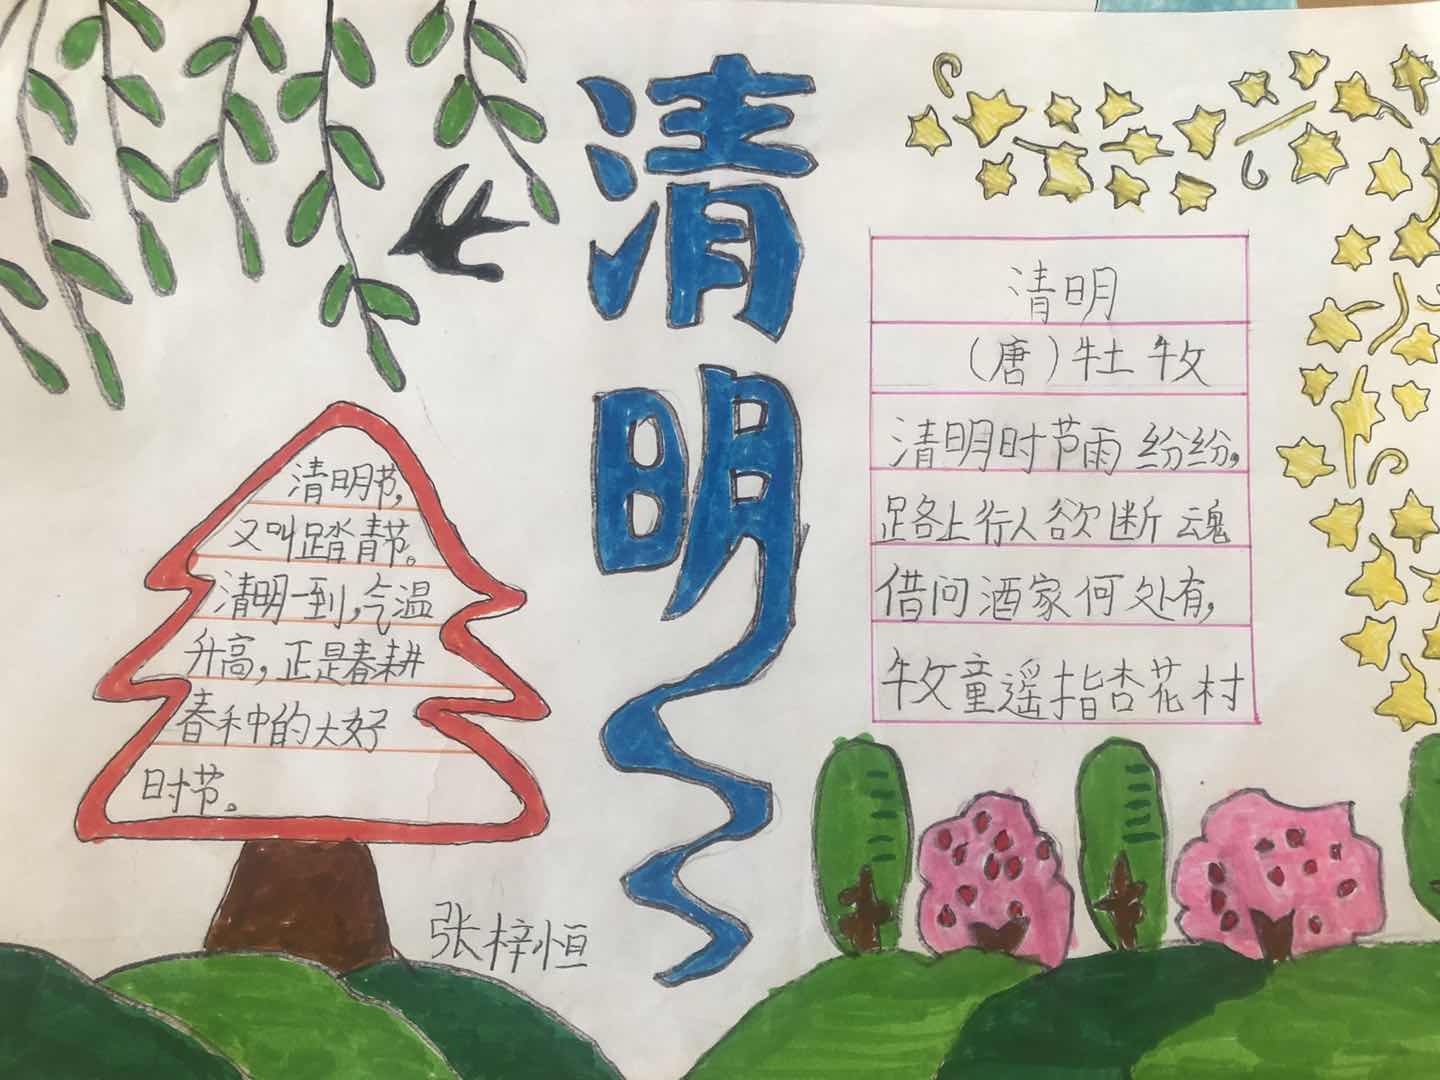 清明
清明节,
又叫踏青节。
清明一到,气温
升高,正是春耕
春种的大好
时节。
张梓恒
清明
(唐)牡牧
清明时节雨纷纷,
路上行人欲断魂
借问酒家何处有,
牧童遥指杏花村